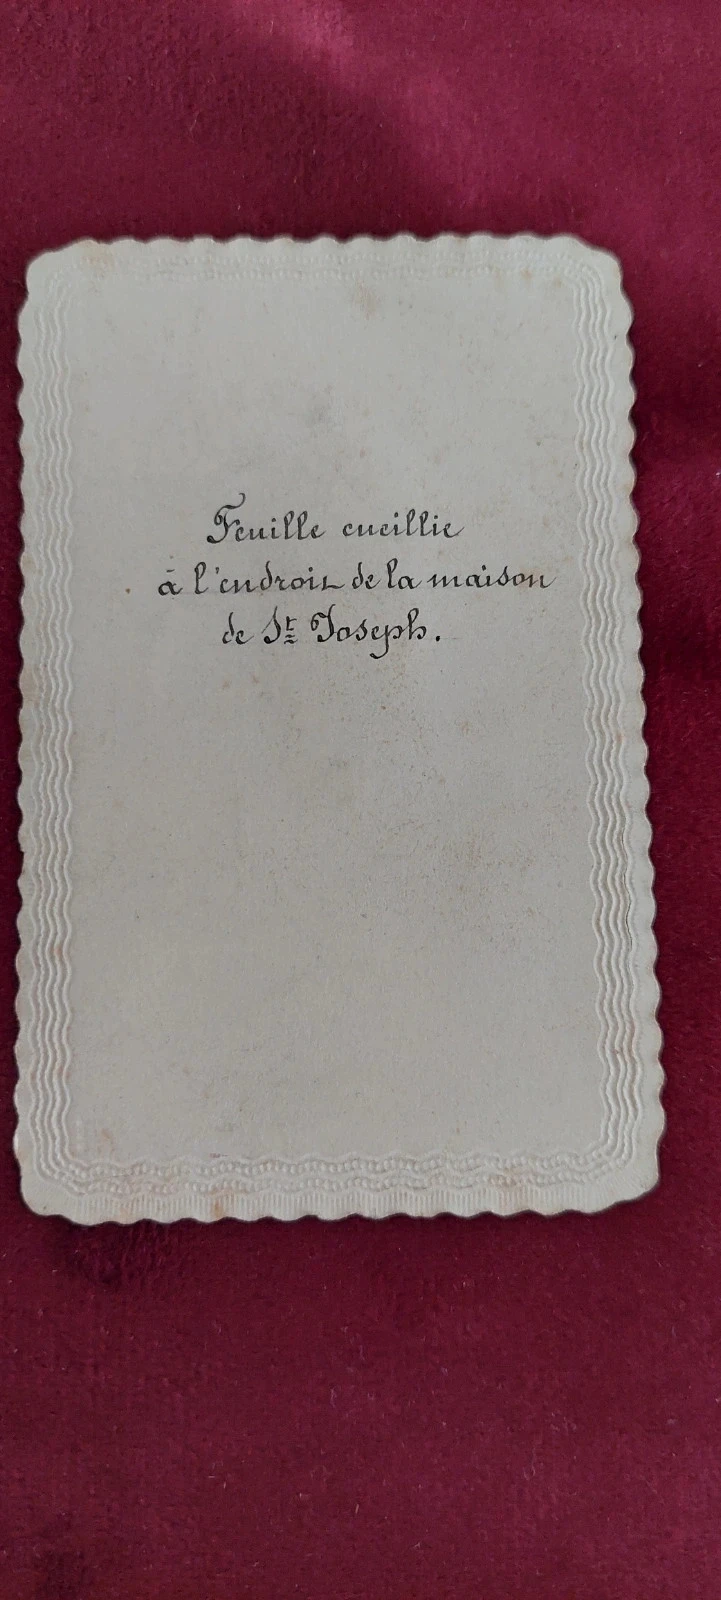 Feuille cueillie
à l'endroit de la maison
de St Joseph.